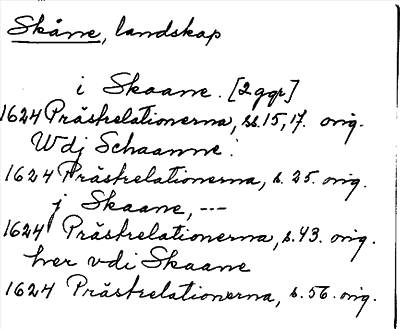 Skåne, landskap
i Skaane. [2 ggr]
1624 Prästrelationerna, ss. 15, 17. orig.
Wdj Schaanne.
1624 Prästrelationerna, s. 25. orig.
j Skaane, ---
1624 Prästrelationerna, s. 43. orig.
her vdi Skaane
1624 Prästrelationerna, s. 56. orig.